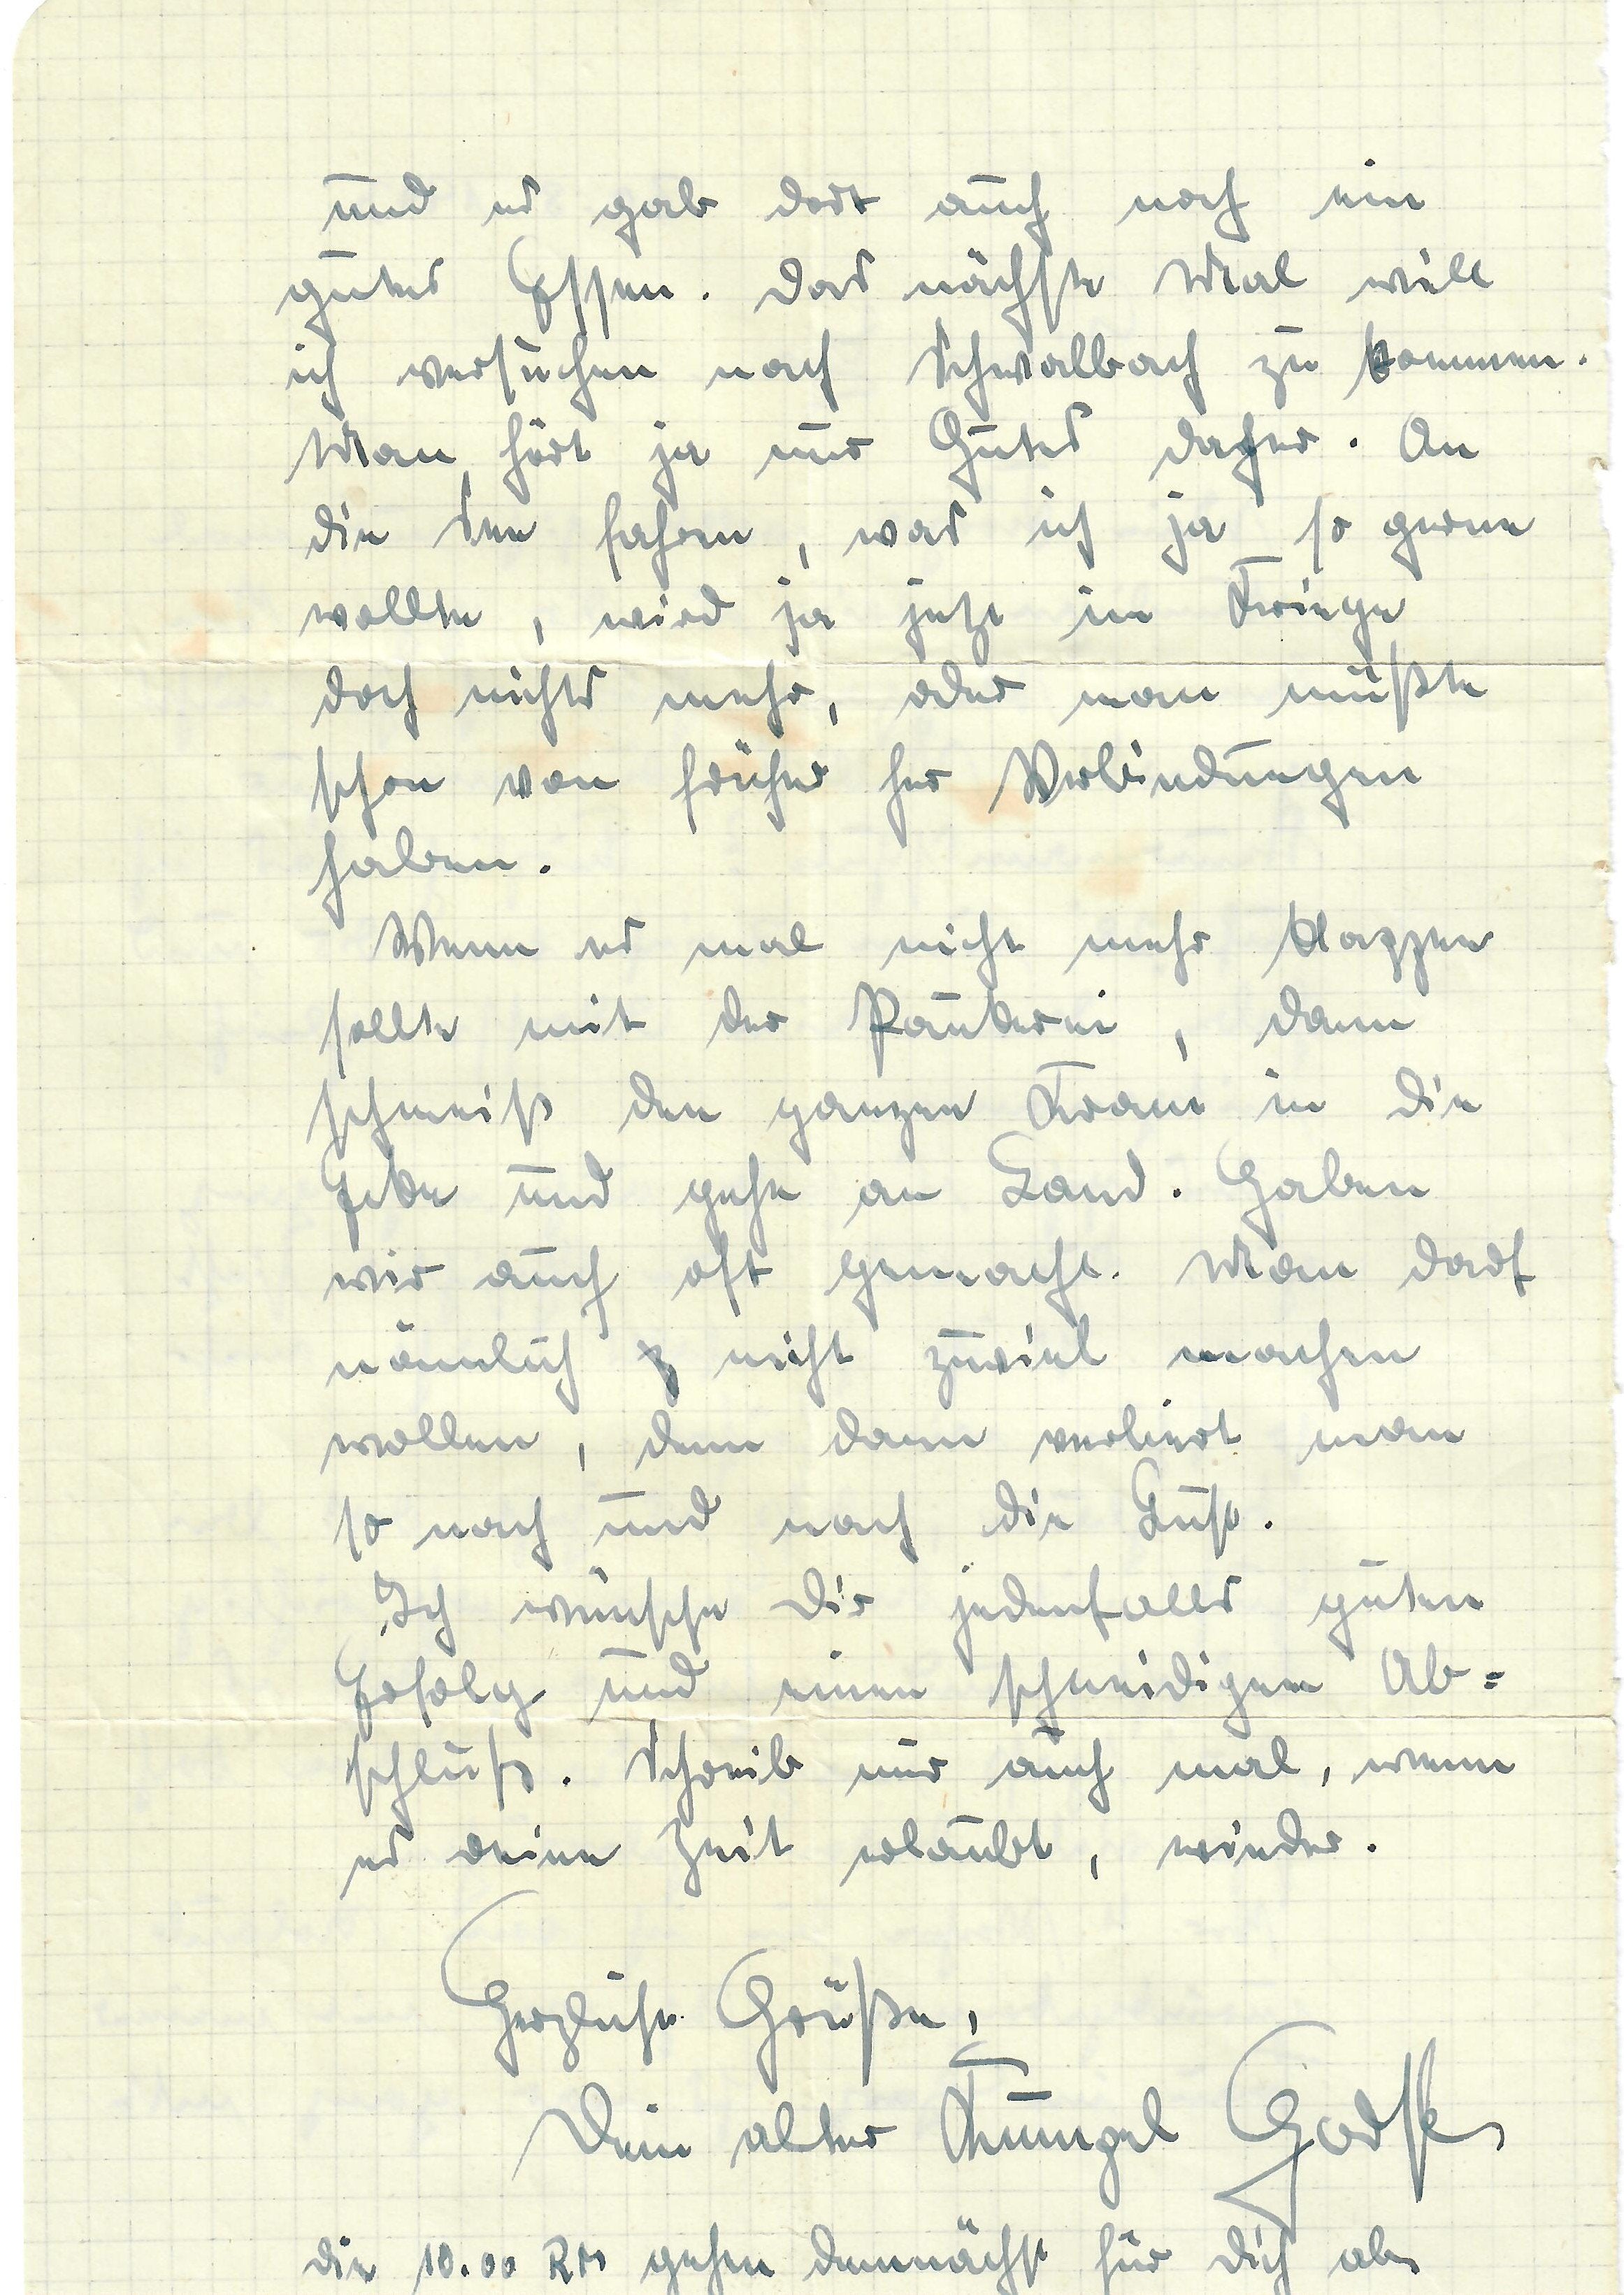 und es gab dort auch noch ein
gutes Essen. Das nächste Mal will
ich versuchen nach Schwalbach zu kommen.
Man hört ja nur Gutes daher. An
die See fahren, was ich ja so gerne
wollte, wird ja jetzt im Kriege
doch nichts mehr, oder man müßte
schon von früher her Verbindungen
haben.
Wenn es mal nicht mehr klappen
sollte mit der Paukerei, dann
schmeiß den ganzen Kram in die
Ecke und gehe an Land. Haben
wir auch oft gemacht. Man darf
nämlich nicht zuviel machen
wollen, denn dann verliert man
so nach und nach die Lust.
Ich wünsche Dir jedenfalls guten
Erfolg und einen schneidigen Ab=
schluß. Schreib mir auch mal, wenn
es deine Zeit erlaubt, wieder.
Herzliche Grüße,
Dein alter Kumpel
die 10.00 RM gehen demnächst für Dich ab